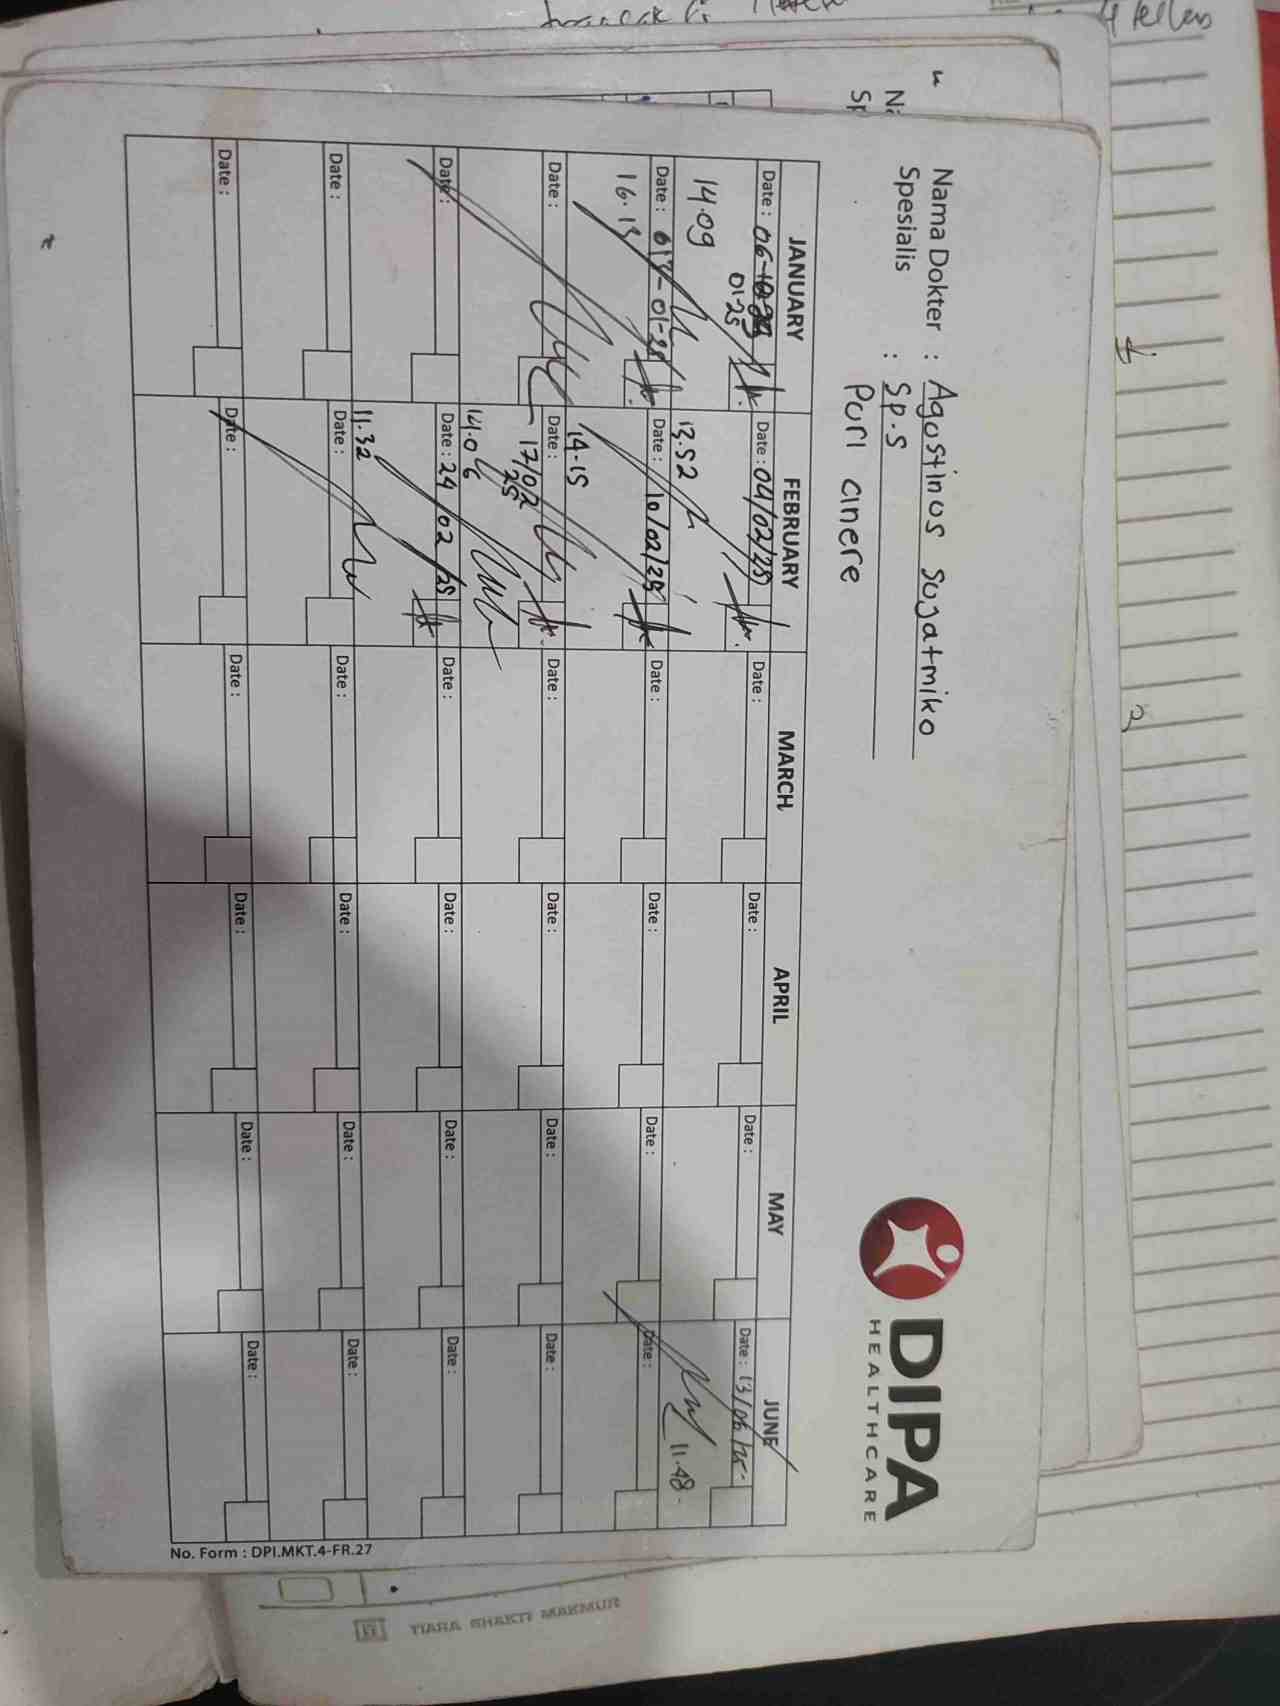 Nama Dokter : Agustinus Sugatmiko
Spesialis : Sp.S
Puri cinere
DIPA
HEALTHCARE
JANUARY FEBRUARY MARCH APRIL MAY JUNE
Date : 06- 01-25 Date : 04/02/25 Date : Date : Date : Date : 13/06/25
14.09 13.52 11.48
Date : 017-01-25 Date : 10/02/25 Date : Date : Date : Date :
16.13 14.15
Date : Date : 17/02 25 Date : Date : Date : Date :
14.06
Date : Date : 24/02/25 Date : Date : Date : Date :
11.32
Date : Date : Date : Date : Date : Date :
Date : Date : Date : Date : Date : Date :
No. Form : DPI.MKT.4-FR.27
TIARA SHAKTI MAKMUR